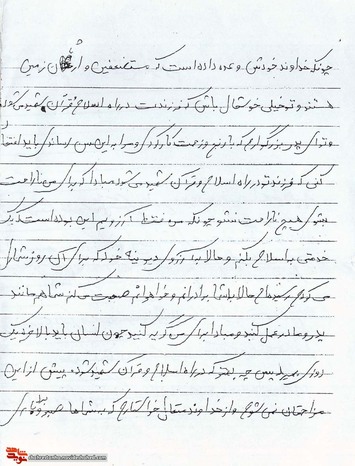 چونکه خداوند خودش وعده داده است که مستضعفین وارثان زمین
هستند و تو خیلی خوشحال باش که فرزندت در راه اسلام و قرآن شهید می‌شود
و تو ای پدر بزرگوارم که با رنج و زحمت کارگری و مرا به این سن رساندی باید افتخار
کنی که فرزند تو در راه اسلام و قرآن شهید می‌شود مبادا که برای من ناراحت
بشوی هیچ ناراحت نشو چونکه من فقط آرزویم این بوده است که یک
خدمتی به اسلام بکنم و حالا به آرزوی دیرینه خود که برای آن روز شماری
می‌کردم رسیدم حالا با شما برادرانم و خواهرانم صحبت می‌کنم شما هم مانند
پدر و مادر عمل کنید و مبادا برای من گریه کنید چون انسان باید بالاخره یک
روزی بمیرد پس چه بهتر که در راه اسلام و قرآن شهید شود بیش از این
مزاحمتان نمی‌شوم و از خداوند متعال خواستارم که به شماها صبر